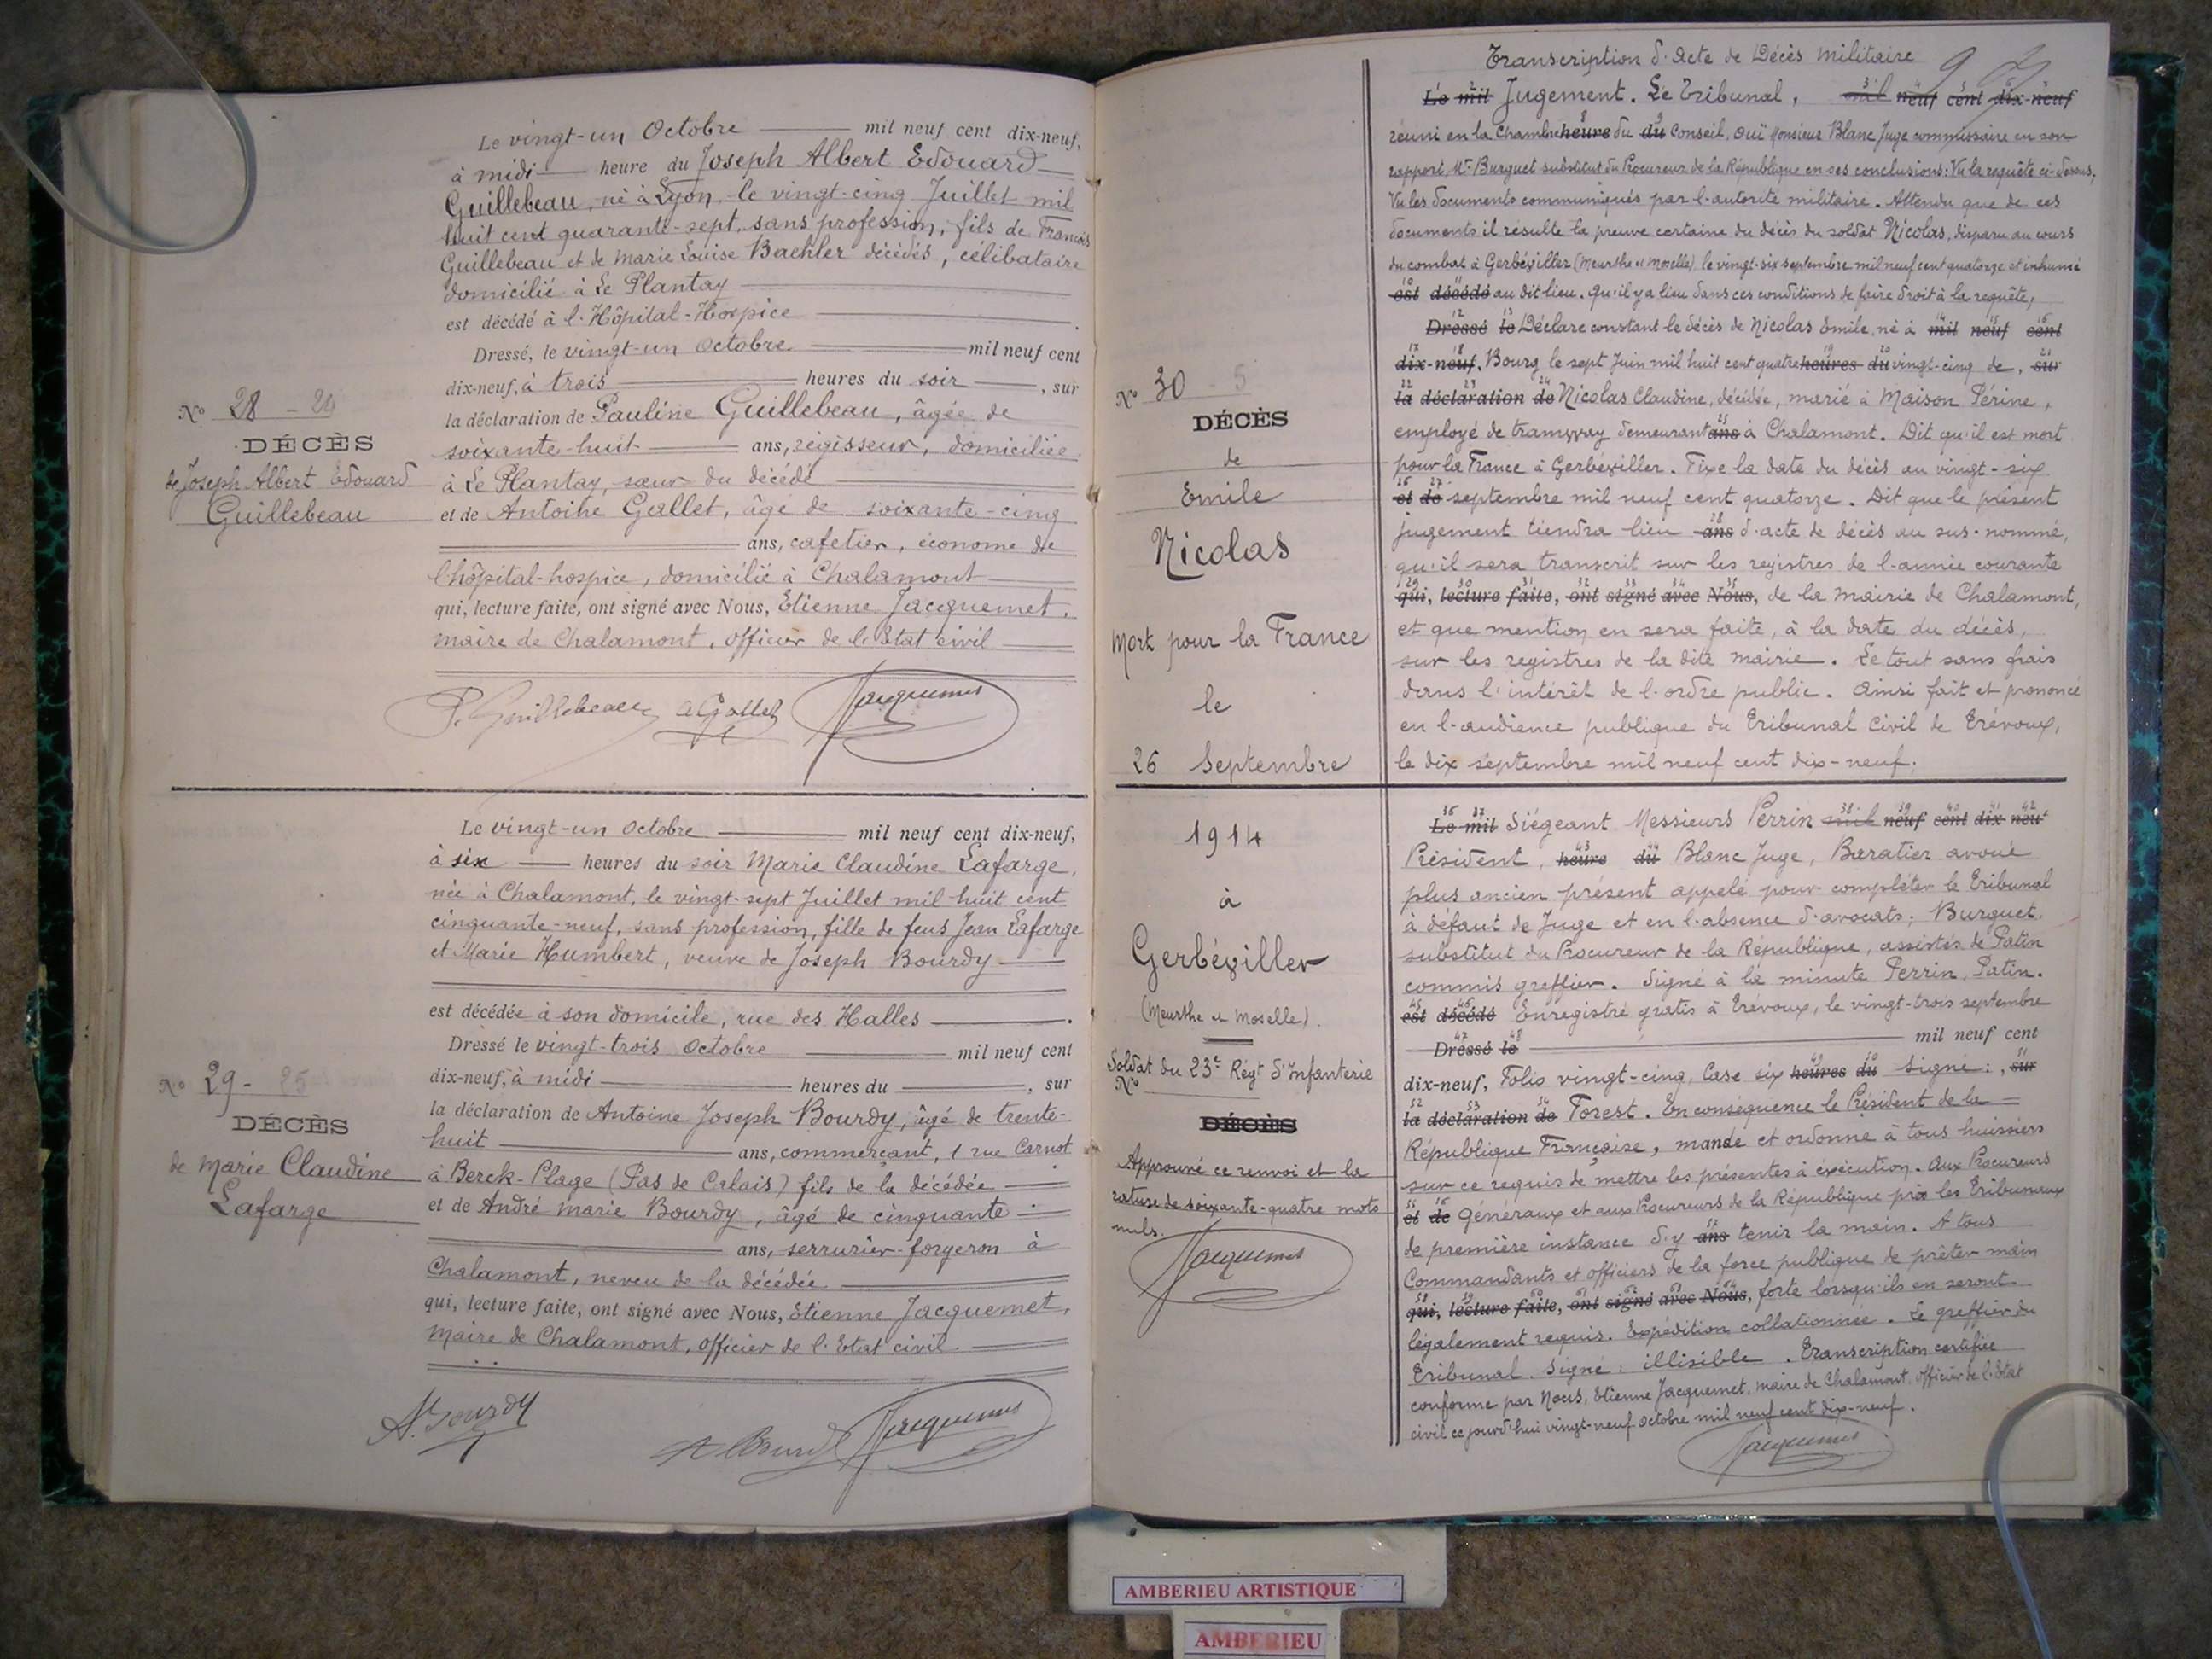 Le vingt-un Octobre mil neuf cent dix-neuf,
à midi heure du Joseph Albert Edouard
Guillebeau, né à Lyon, le vingt-cinq Juillet mil
huit cent quarante-sept, sans profession, fils de Francois
Guillebeau et de Marie Louise Baehler décédés, célibataire
domicilié à Le Plantay
est décédé à l'Hôpital-Hospice
Dressé, le vingt-un Octobre mil neuf cent
dix-neuf, à trois heures du soir, sur
la déclaration de Pauline Guillebeau, âgée de
soixante-huit ans, régisseur, domiciliée
à Le Plantay, sœur du décédé
et de Antoine Gallet, âgé de soixante-cinq
ans, cafetier, économe de
l'hôpital-hospice, domicilié à Chalamont
qui, lecture faite, ont signé avec Nous, Etienne Jacquemet,
maire de Chalamont, officier de l'Etat civil
P. Guillebeau A Gallet Jacquemet
N° 28 - 24
DÉCÈS
de Joseph Albert Edouard
Guillebeau
Le vingt-un Octobre mil neuf cent dix-neuf,
à six heures du soir Marie Claudine Lafarge,
née à Chalamont, le vingt-sept Juillet mil huit cent
cinquante-neuf, sans profession, fille de feus Jean Lafarge
et Marie Humbert, veuve de Joseph Bourdy
est décédée à son domicile, rue des Halles
Dressé le vingt-trois Octobre mil neuf cent
dix-neuf, à midi heures du , sur
la déclaration de Antoine Joseph Bourdy, âgé de trente-
huit ans, commerçant, 1 rue Carnot
à Berck-Plage (Pas de Calais) fils de la décédée
et de André Marie Bourdy, âgé de cinquante
ans, serrurier-forgeron à
Chalamont, neveu de la décédée
qui, lecture faite, ont signé avec Nous, Etienne Jacquemet,
Maire de Chalamont, officier de l'Etat civil
A. Bourdy
A Bourdy Jacquemet
N° 29 - 25
DÉCÈS
de Marie Claudine
Lafarge
N° 30 5
DÉCÈS
de
Emile
Nicolas
Mort pour la France
le
26 Septembre
1914
à
Gerbéviller
(Meurthe et Moselle).
Soldat du 23e Régt d'Infanterie
N°
DÉCÈS
Approuvé ce renvoi et la
rature de soixante-quatre mots
nuls.
Jacquemet
Transcription d'Acte de Décès Militaire
97
Le mil Jugement. Le Tribunal, mil neuf cent dix-neuf
réuni en la Chambre heure du du Conseil, ouï Monsieur Blanc Juge commissaire en son
rapport, Mr Burguet substitut du Procureur de la République en ses conclusions: Vu la requête ci-dessus;
Vu les documents communiqués par l'autorité militaire. Attendu que de ces
documents il résulte la preuve certaine du décès du soldat Nicolas, disparu au cours
du combat à Gerbéviller (Meurthe et Moselle), le vingt-six septembre mil neuf cent quatorze et inhumé
est décédé au dit lieu. Qu'il y a lieu dans ces conditions de faire droit à la requête,
Dressé le Déclare constant le décès de Nicolas Emile, né à mil neuf cent
dix-neuf, Bourg le sept Juin mil huit cent quatre heures du vingt-cinq de, sur
la déclaration de Nicolas Claudine, décédée, marié à Maison Périne,
employé de tramway demeurant ans à Chalamont. Dit qu'il est mort
pour la France à Gerbéviller. Fixe la date du décès au vingt-six
et de septembre mil neuf cent quatorze. Dit que le présent
jugement tiendra lieu ans d'acte de décès au sus-nommé,
qu'il sera transcrit sur les registres de l'année courante
qui, lecture faite, ont signé avec Nous, de la mairie de Chalamont,
et que mention en sera faite, à la date du décès,
sur les registres de la dite mairie. Le tout sans frais
dans l'intérêt de l'ordre public. Ainsi fait et prononcé
en l'audience publique du Tribunal Civil de Trévoux,
le dix septembre mil neuf cent dix-neuf.
Le mil Siégeant Messieurs Perrin mil neuf cent dix neuf
Président, heure du Blanc Juge, Baratier avoué
plus ancien présent appelé pour compléter le Tribunal
à défaut de Juge et en l'absence d'avocats; Burguet,
substitut du Procureur de la République, assistés de Patin
commis greffier. Signé à la minute Perrin, Patin.
est décédé Enregistré gratis à Trévoux, le vingt-trois septembre
Dressé le mil neuf cent
dix-neuf, Folio vingt-cinq Case six heures du signé: , sur
la déclaration de Forest. En conséquence le Président de la
République Française, mande et ordonne à tous huissiers
sur ce requis de mettre les présentes à éxécution. Aux Procureurs
et de Généraux et aux Procureurs de la République près les Tribunaux
de première instance d'y ans tenir la main. A tous
Commandants et officiers de la force publique de prêter main
qui, lecture faite, ont signé avec Nous, forte lorsqu'ils en seront
légalement requis. Expédition collationnée. Le greffier du
Tribunal. Signé: illisible. Transcription certifiée
conforme par Nous, Etienne Jacquemet, maire de Chalamont, officier de l'Etat
civil ce jourd'hui vingt-neuf Octobre mil neuf cent dix-neuf.
Jacquemet
AMBERIEU ARTISTIQUE
AMBERIEU